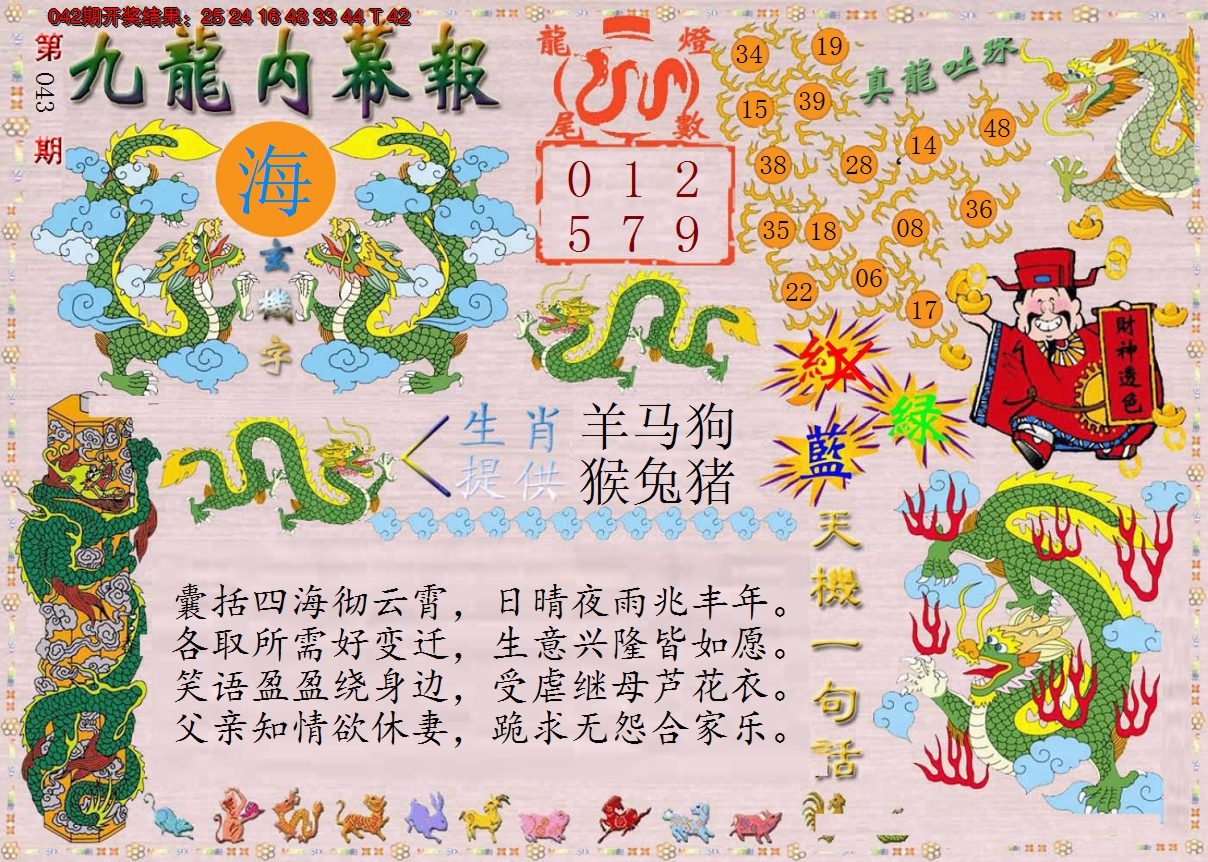 042期开奖结果：25 24 16 48 33 44 T 42
第
043
期
九龍内幕報
海
玄
機
字
龍燈
尾數
0 1 2
5 7 9
真龍吐珠
34 19
15 39
38 28 14 48
35 18 08 36
22 06 17
財神透色
紅
綠
藍
生肖
提供
羊马狗
猴兔猪
天機一句話
囊括四海彻云霄，日晴夜雨兆丰年。
各取所需好变迁，生意兴隆皆如愿。
笑语盈盈绕身边，受虐继母芦花衣。
父亲知情欲休妻，跪求无怨合家乐。